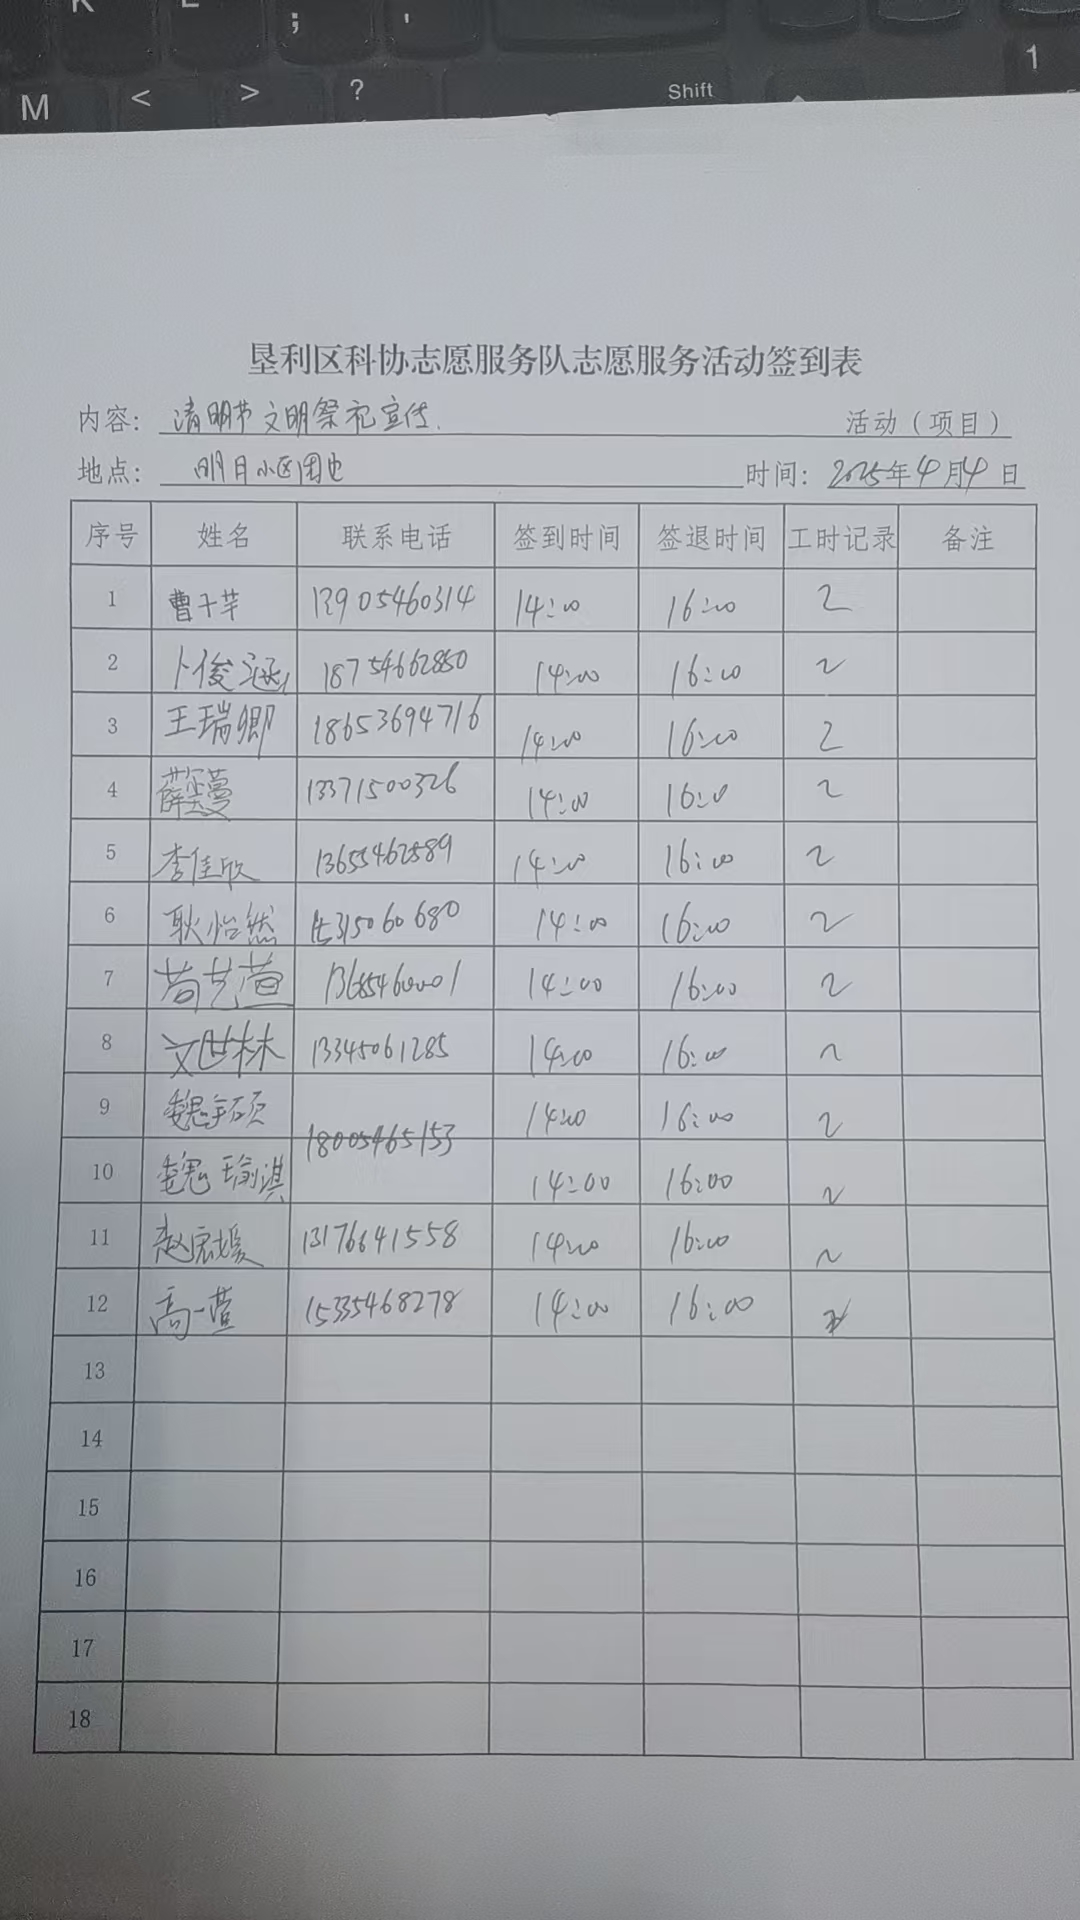 K L ; '
M < > ? Shift 1
垦利区科协志愿服务队志愿服务活动签到表
内容: 清明节文明祭祀宣传. 活动（项目）
地点: 明月小区周边 时间: 2025年4月4日
序号 姓名 联系电话 签到时间 签退时间 工时记录 备注
1 曹子芊 13905460314 14:00 16:00 2
2 卜俊涵 18754662850 14:00 16:00 2
3 王瑞卿 18653694716 14:00 16:00 2
4 薛蔓 13371500326 14:00 16:0 2
5 李佳欣 13655462589 14:00 16:00 2
6 耿怡然 15315060680 14:00 16:00 2
7 苟艺萱 13685460001 14:00 16:00 2
8 文世林 13345061285 14:00 16:00 2
9 魏硕 14:00 16:00 2
18005465153
10 魏瑜淇 14:00 16:00 2
11 赵宸媛 13176641558 14:00 16:00 2
12 高一萱 15335468278 14:00 16:00 2
13
14
15
16
17
18